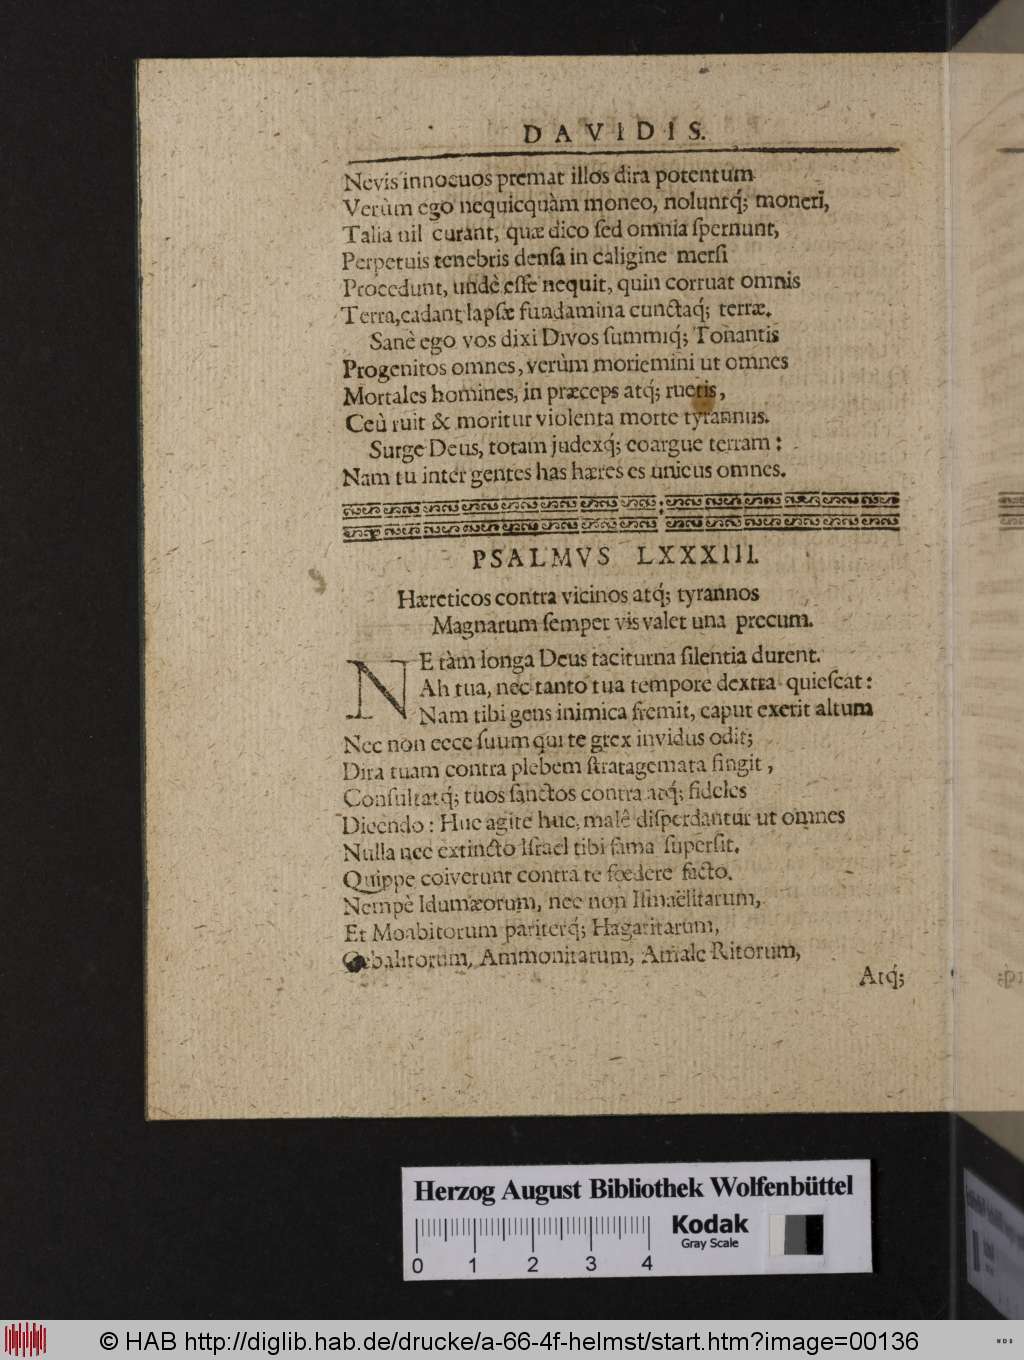 DAVIDIS.
Nevis innocuos premat illos dira potentum
Verùm ego nequicquàm moneo, noluntq́; moneri,
Talia nil curant, quæ dico ſed omnia ſpernunt,
Perpetuis tenebris denſa in caligine merſi
Procedunt, undè eſſe nequit, quin corruat omnis
Terra, cadant lapſæ fundamina cunctaq́; terræ.
Sanè ego vos dixi Divos ſummiq́; Tonantis
Progenitos omnes, verùm moriemini ut omnes
Mortales homines, in præceps atq́; ruetis,
Ceù ruit & moritur violenta morte tyrannus.
Surge Deus, totam judexq́; coargue terram:
Nam tu inter gentes has hæres es unicus omnes.
PSALMVS LXXXIII.
Hæreticos contra vicinos atq́; tyrannos
Magnarum ſemper vis valet una precum.
NE tàm longa Deus taciturna ſilentia durent.
Ah tua, nec tanto tua tempore dextra quieſcat:
Nam tibi gens inimica fremit, caput exerit altum
Nec non ecce ſuum qui te grex invidus odit;
Dira tuam contra plebem ſtratagemata fingit,
Conſultatq́; tuos ſanctos contra atq́; fideles
Dicendo: Huc agite huc, malê diſperdantur ut omnes
Nulla nec extincto Iſrael tibi fama ſuperſit.
Quippe coiverunt contra te fœdere facto.
Nempè Idumæorum, nec non Iſmaëlitarum,
Et Moabitorum pariterq́; Hagaritarum,
Gebalitorum, Ammonitarum, Amale Ritorum,
Atq́;
Herzog August Bibliothek Wolfenbüttel
Kodak
Gray Scale
0 1 2 3 4
© HAB http://diglib.hab.de/drucke/a-66-4f-helmst/start.htm?image=00136